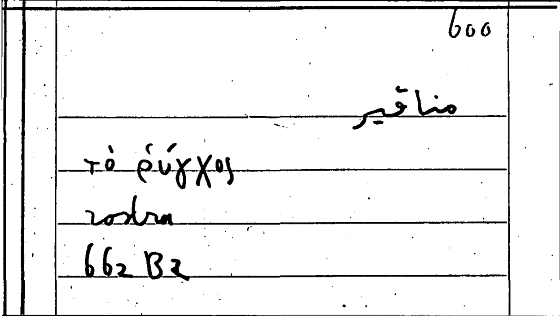 600
مناقير
τὸ ῥύγχος
rostra
662 B2